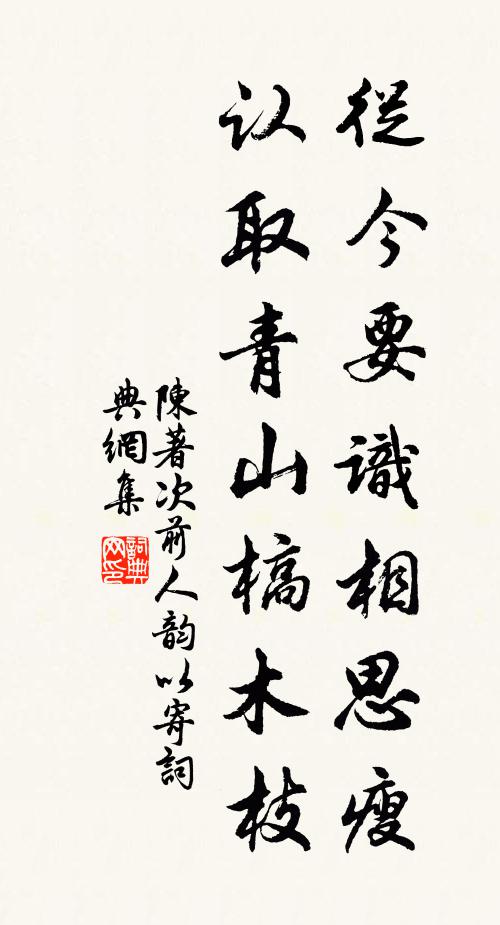 從今要識相思瘦
认取青山槁木枝
陳著次前人韵以寄詞
典網集
詞典網印